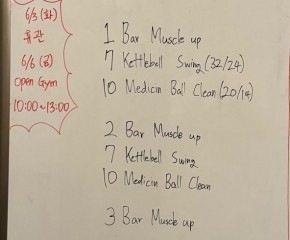 6/3 (화)
휴관
6/6 (금)
Open Gym
10:00~13:00
1 Bar Muscle up
7 Kettlebell Swing (32/24)
10 Medicin Ball Clean (20/14)
2 Bar Muscle up
7 Kettlebell Swing
10 Medicin Ball Clean
3 Bar Muscle up